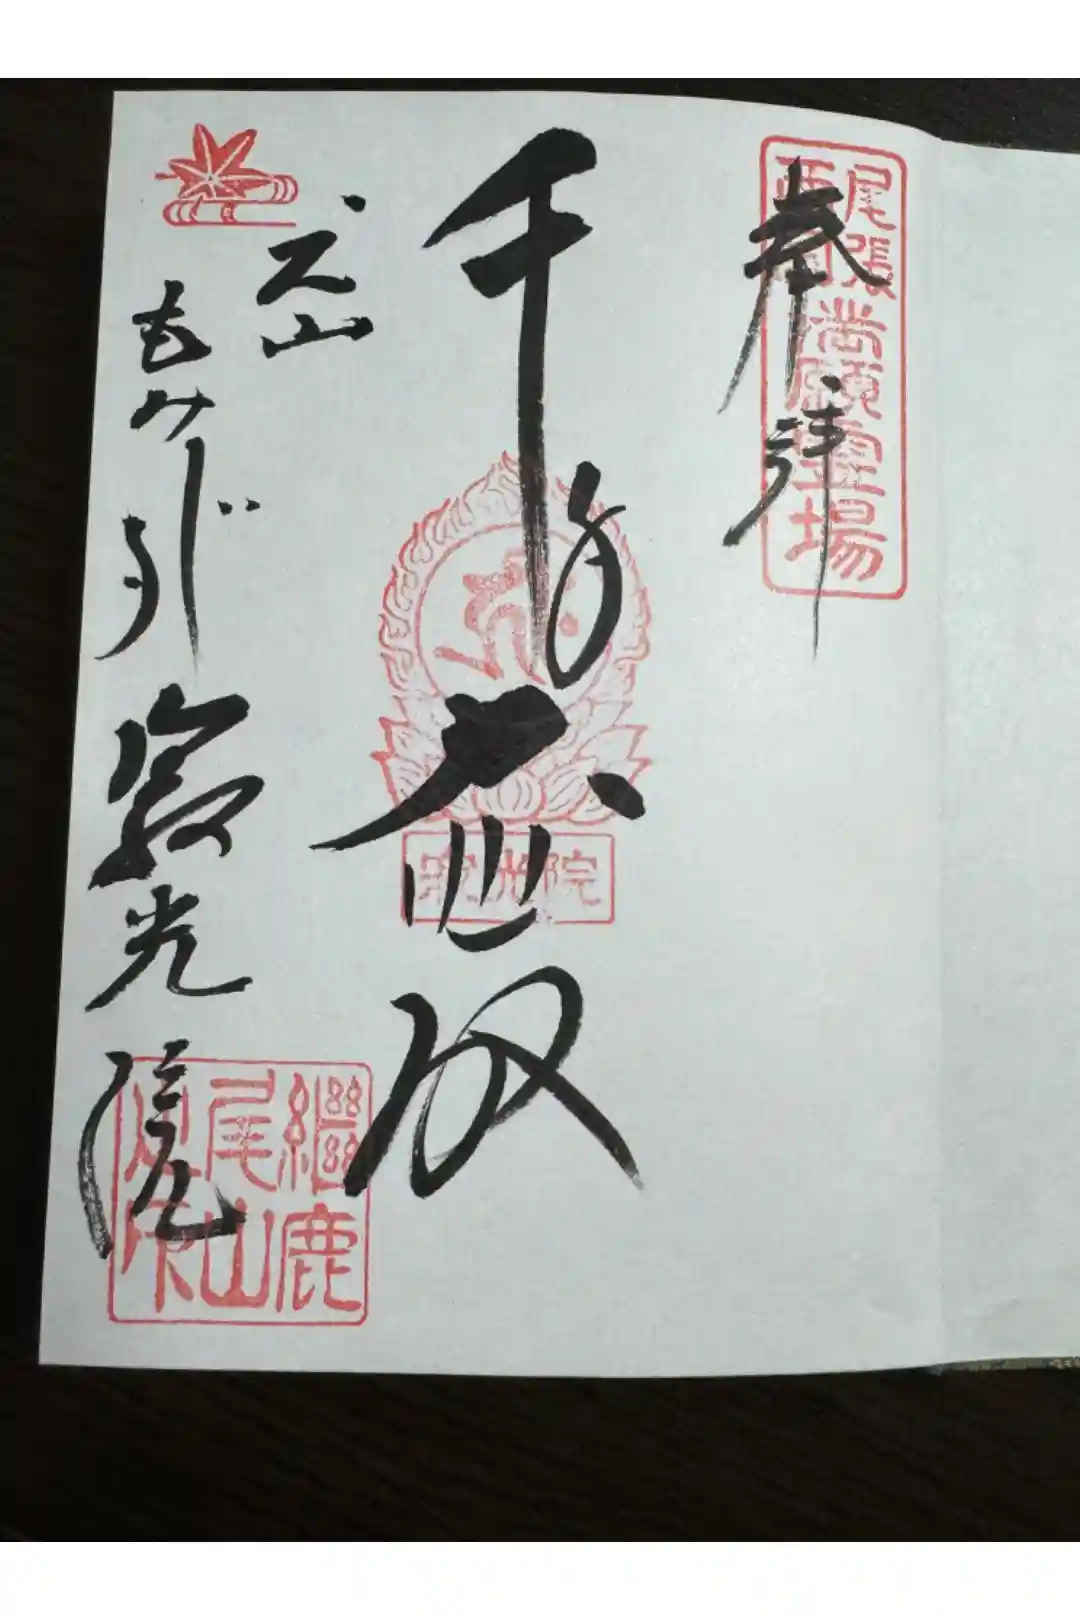 奉拝
尾張
西国
満願霊場
千手
寂光院
犬山
もみじ寺
寂光院
繼鹿
尾山